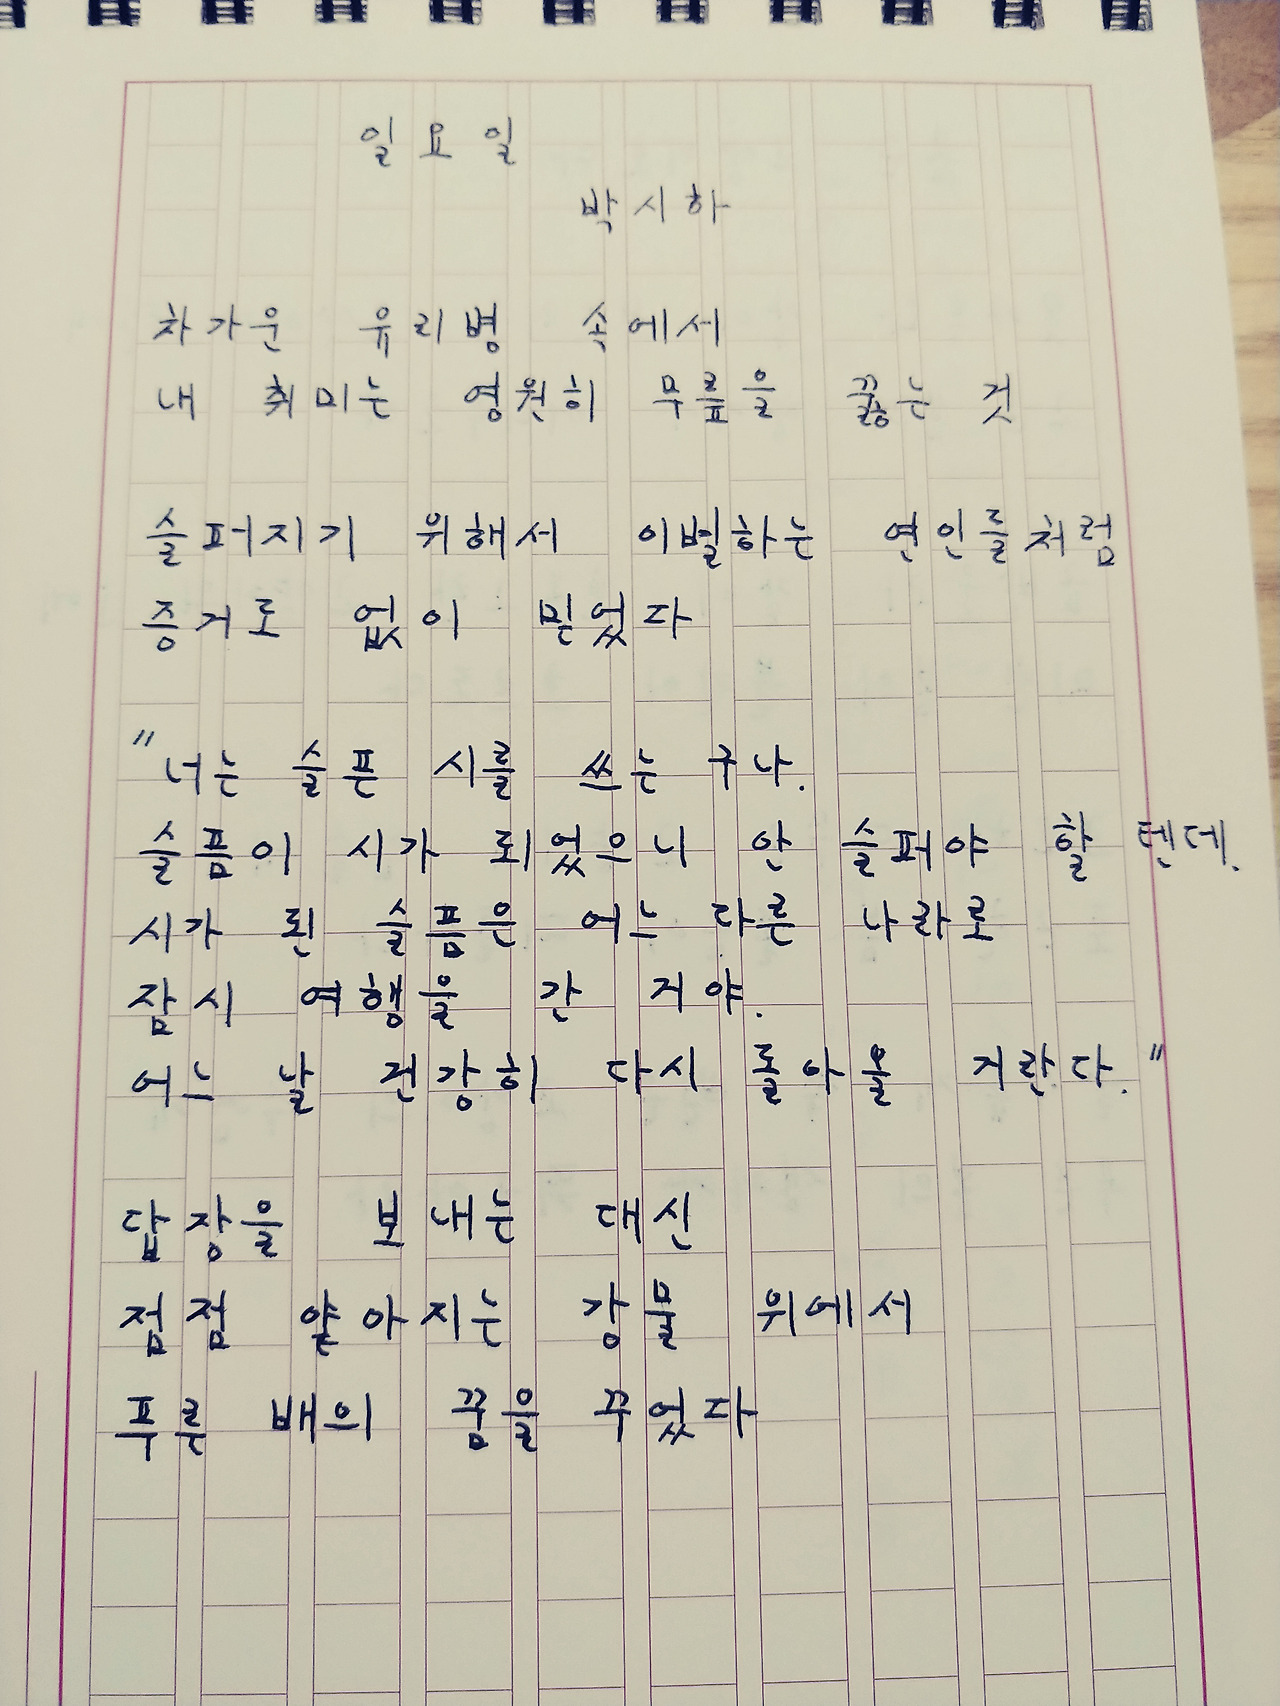 일요일
박시하
차가운 유리병 속에서
내 취미는 영원히 무릎을 꿇는 것
슬퍼지기 위해서 이별하는 연인들처럼
증거로 없이 믿었다
"너는 슬픈 시를 쓰는구나.
슬픔이 시가 되었으니 안 슬퍼야 할 텐데.
시가 된 슬픔은 어느 다른 나라로
잠시 여행을 간 거야.
어느 날 건강히 다시 돌아올 거란다."
답장을 보내는 대신
점점 얇아지는 강물 위에서
푸른 배의 꿈을 꾸었다